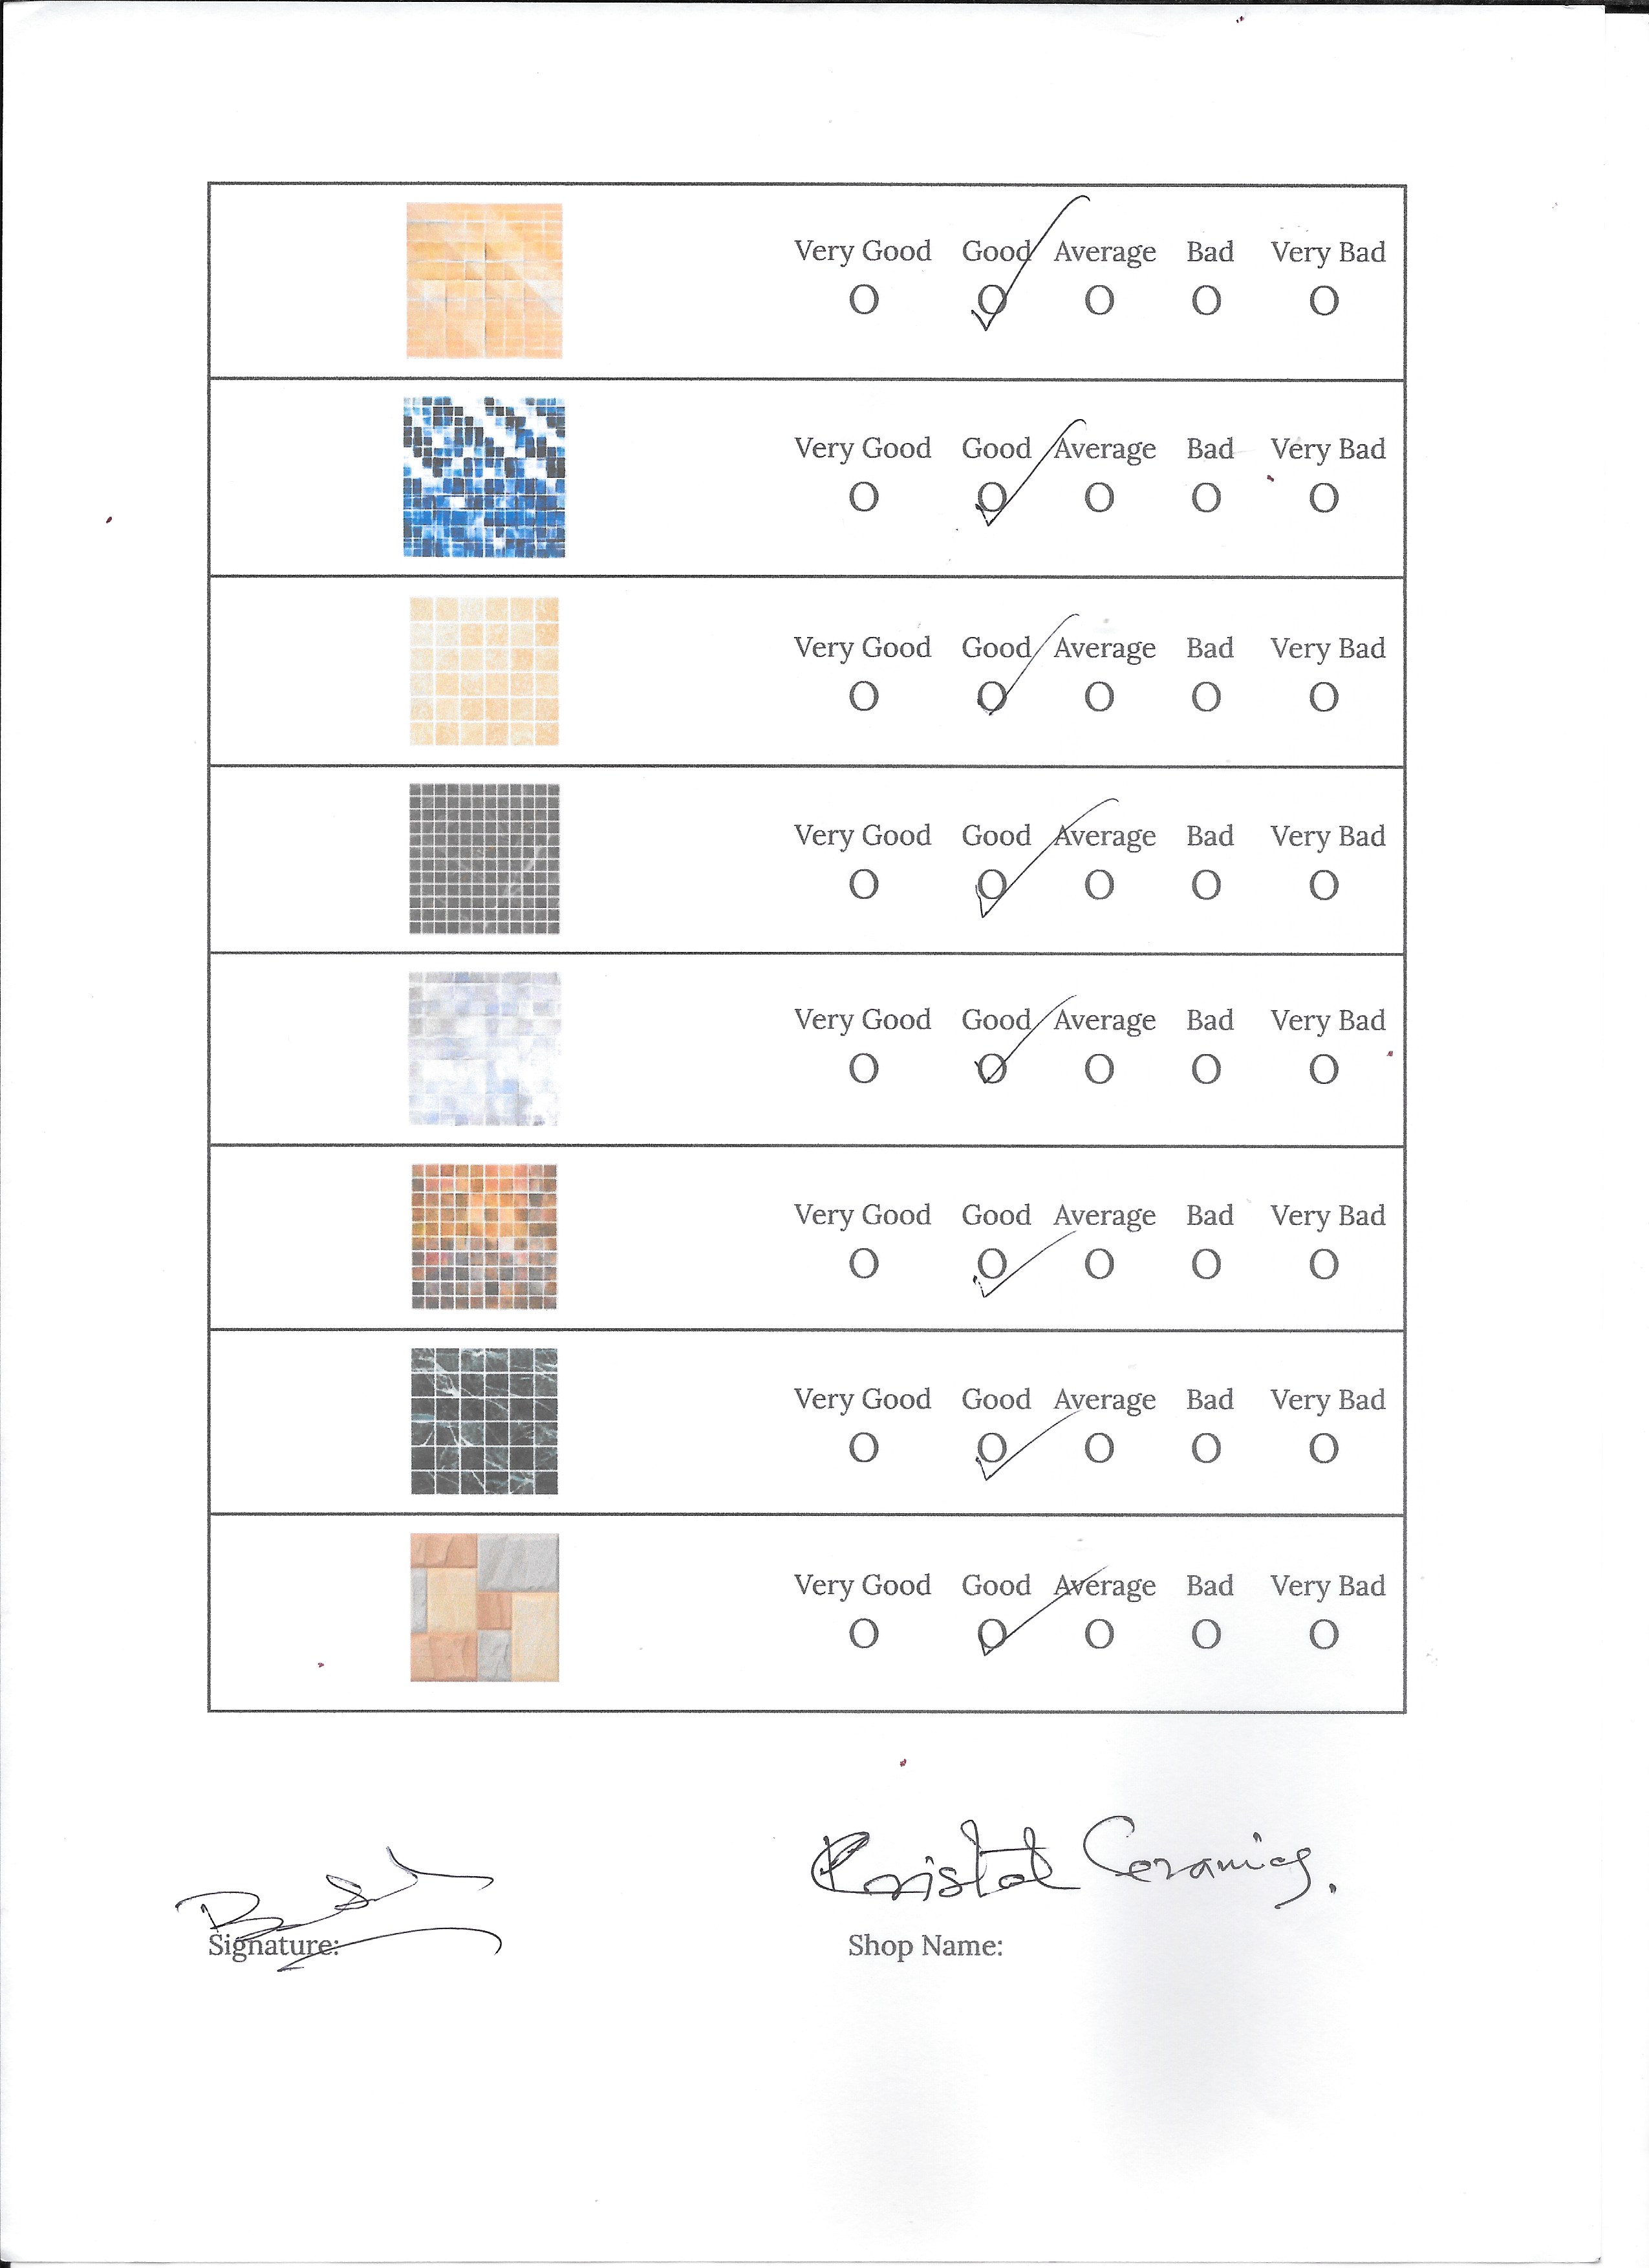 Very Good Good Average Bad Very Bad
O O O O O
Very Good Good Average Bad Very Bad
O O O O O
Very Good Good Average Bad Very Bad
O O O O O
Very Good Good Average Bad Very Bad
O O O O O
Very Good Good Average Bad Very Bad
O O O O O
Very Good Good Average Bad Very Bad
O O O O O
Very Good Good Average Bad Very Bad
O O O O O
Very Good Good Average Bad Very Bad
O O O O O
Kristal Ceramics.
Signature: Shop Name: